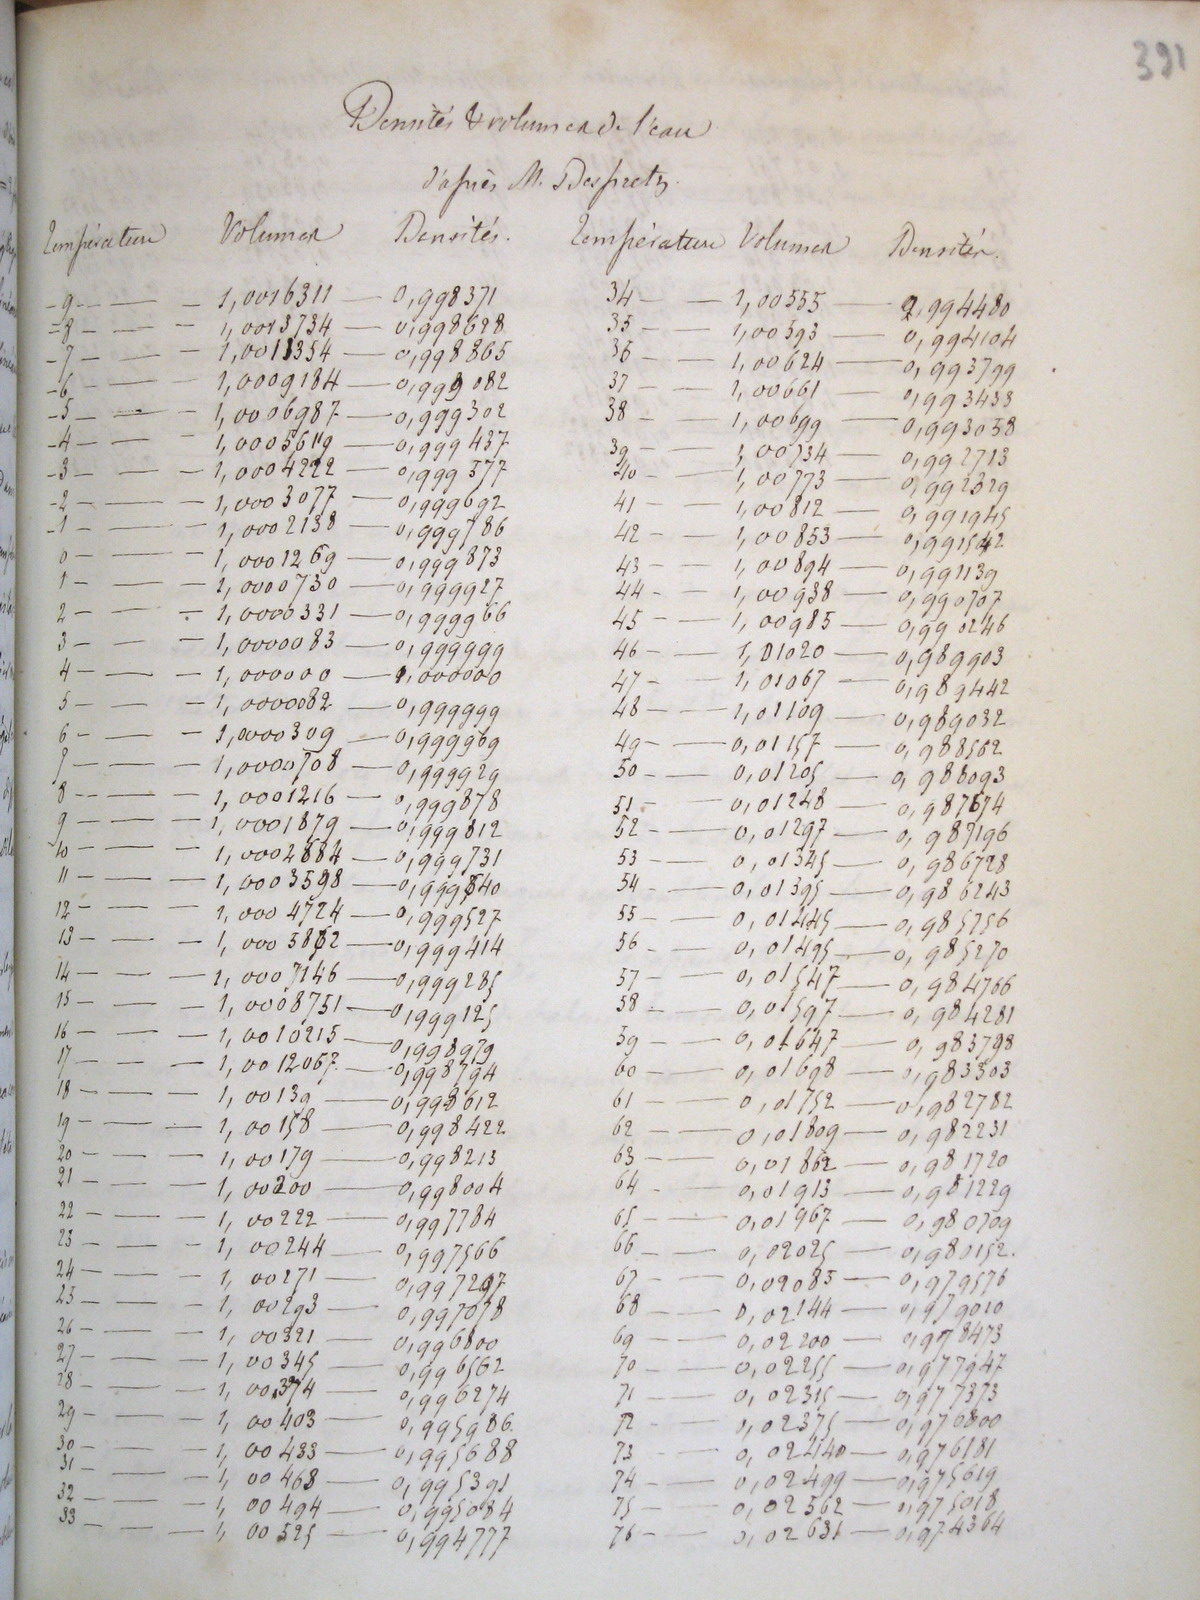 391
Densités & volumes de l'eau
d'après M. Despretz.
Température Volumes Densités. Température Volumes Densités.
-9 — 1,0016311 — 0,998371 34 — 1,00555 — 0,994480
-8 — 1,0013734 — 0,998628 35 — 1,00593 — 0,994104
-7 — 1,0011354 — 0,998865 36 — 1,00624 — 0,993799
-6 — 1,0009184 — 0,999082 37 — 1,00661 — 0,993433
-5 — 1,0006987 — 0,999302 38 — 1,00699 — 0,993058
-4 — 1,0005619 — 0,999437 39 — 1,00734 — 0,992713
-3 — 1,0004222 — 0,999577 40 — 1,00773 — 0,992329
-2 — 1,0003077 — 0,999692 41 — 1,00812 — 0,991945
-1 — 1,0002138 — 0,999786 42 — 1,00853 — 0,991542
0 — 1,0001269 — 0,999873 43 — 1,00894 — 0,991139
1 — 1,0000730 — 0,999927 44 — 1,00938 — 0,990707
2 — 1,0000331 — 0,999966 45 — 1,00985 — 0,990246
3 — 1,0000083 — 0,999999 46 — 1,01020 — 0,989903
4 — 1,000000 — 1,000000 47 — 1,01067 — 0,989442
5 — 1,0000082 — 0,999999 48 — 1,01109 — 0,989032
6 — 1,0000309 — 0,999969 49 — 0,01157 — 0,988562
7 — 1,0000708 — 0,999929 50 — 0,01205 — 0,988093
8 — 1,0001216 — 0,999878 51 — 0,01248 — 0,987674
9 — 1,0001879 — 0,999812 52 — 0,01297 — 0,987196
10 — 1,0002684 — 0,999731 53 — 0,01345 — 0,986728
11 — 1,0003598 — 0,999640 54 — 0,01395 — 0,986243
12 — 1,0004724 — 0,999527 55 — 0,01445 — 0,985756
13 — 1,0005862 — 0,999414 56 — 0,01495 — 0,985270
14 — 1,0007146 — 0,999285 57 — 0,01547 — 0,984766
15 — 1,0008751 — 0,999125 58 — 0,01597 — 0,984281
16 — 1,0010215 — 0,998979 59 — 0,01647 — 0,983798
17 — 1,0012067 — 0,998794 60 — 0,01698 — 0,983303
18 — 1,00139 — 0,998612 61 — 0,01752 — 0,982782
19 — 1,00158 — 0,998422 62 — 0,01809 — 0,982231
20 — 1,00179 — 0,998213 63 — 0,01862 — 0,981720
21 — 1,00200 — 0,998004 64 — 0,01913 — 0,981229
22 — 1,00222 — 0,997784 65 — 0,01967 — 0,980709
23 — 1,00244 — 0,997566 66 — 0,02025 — 0,980152.
24 — 1,00271 — 0,997297 67 — 0,02085 — 0,979576
25 — 1,00293 — 0,997078 68 — 0,02144 — 0,979010
26 — 1,00321 — 0,996800 69 — 0,02200 — 0,978473
27 — 1,00345 — 0,996562 70 — 0,02255 — 0,977947
28 — 1,00374 — 0,996274 71 — 0,02315 — 0,977373
29 — 1,00403 — 0,995986 72 — 0,02375 — 0,976800
30 — 1,00433 — 0,995688 73 — 0,02440 — 0,976181
31 — 1,00468 — 0,995391 74 — 0,02499 — 0,975619
32 — 1,00494 — 0,995084 75 — 0,02562 — 0,975018
33 — 1,00525 — 0,994777 76 — 0,02631 — 0,974364